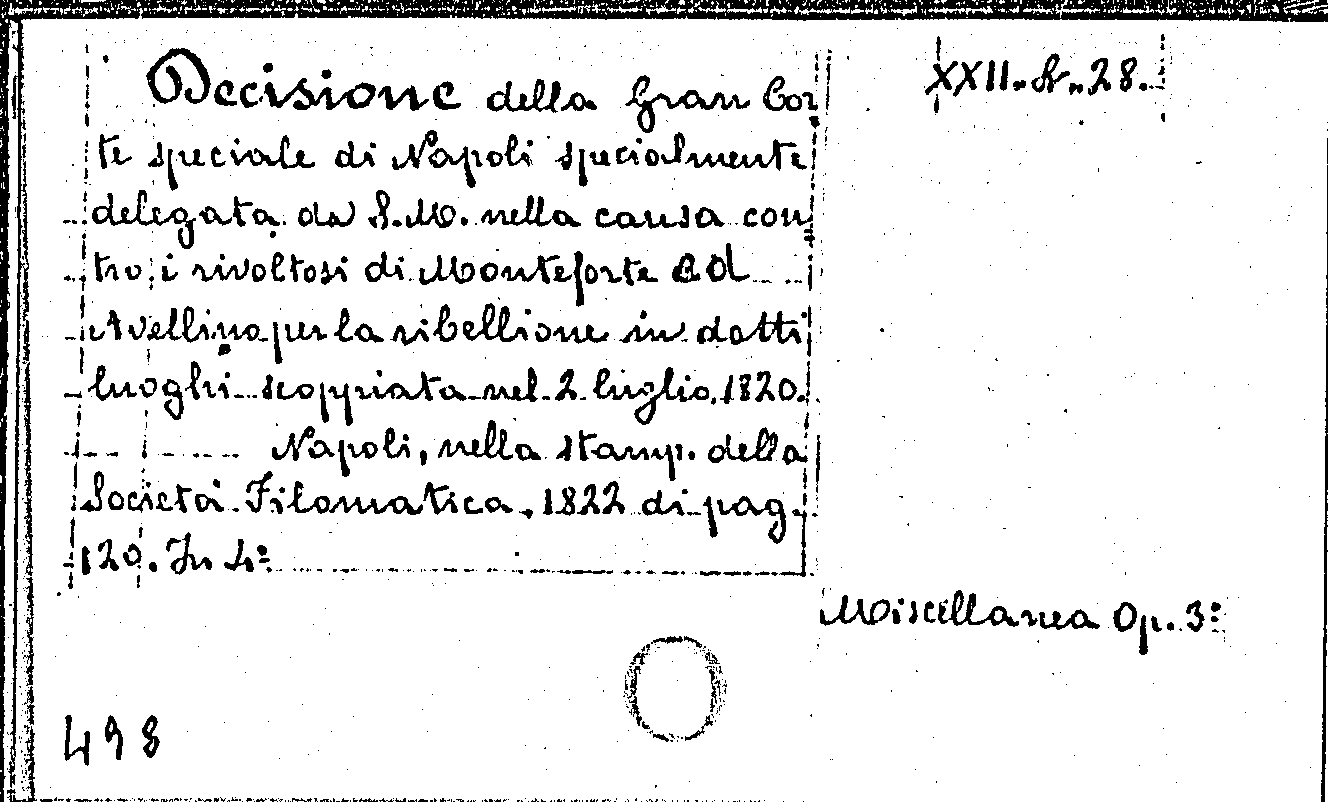 Decisione della Gran Cor
XXII. A. 28.
te speciale di Napoli specialmente
delegata da S.M. nella causa con
tro i rivoltosi di Monteforte ed
Avellino per la ribellione in detti
luoghi scoppiata nel 2 luglio 1820.
Napoli, nella stamp. della
Società Filomatica, 1822 di pag.
120. In 4º
Miscellanea Op. 3º
498